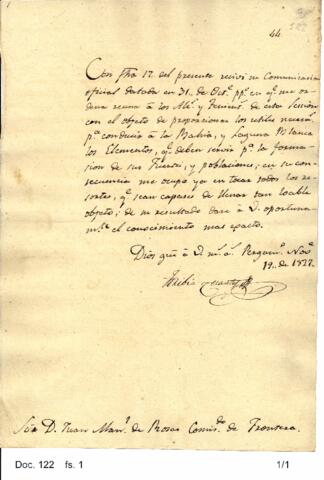 44.
Con fha 17. del presente recivi su Comunicacion
oficial datada en 31. de Oct.e pp.o en q.e me or-
dena reuna à los Alc.s y Tenien.s de esta Seccion
con el objeto de proporcionar los utiles neces.s
p.a conducir à la Bahia, y Laguna Blanca
los Elementos, q.e deben servir p.a la forma-
cion de sus Fuertes, y poblaciones; en su con-
secuencia me ocupo ya en tocar todos los re-
sortes, q.e sean capases de llenar tan loable
objeto; de su resultado daré à V. oportuna-
m.te el conocimiento mas exacto.
Dios gũe à V. m.s a.s Pergam.o Nov.e
19.. de 1827.
Sõr D. Juan Man.l de Rosas Comis.do de Frontera.
Doc. 122 fs. 1
1/1